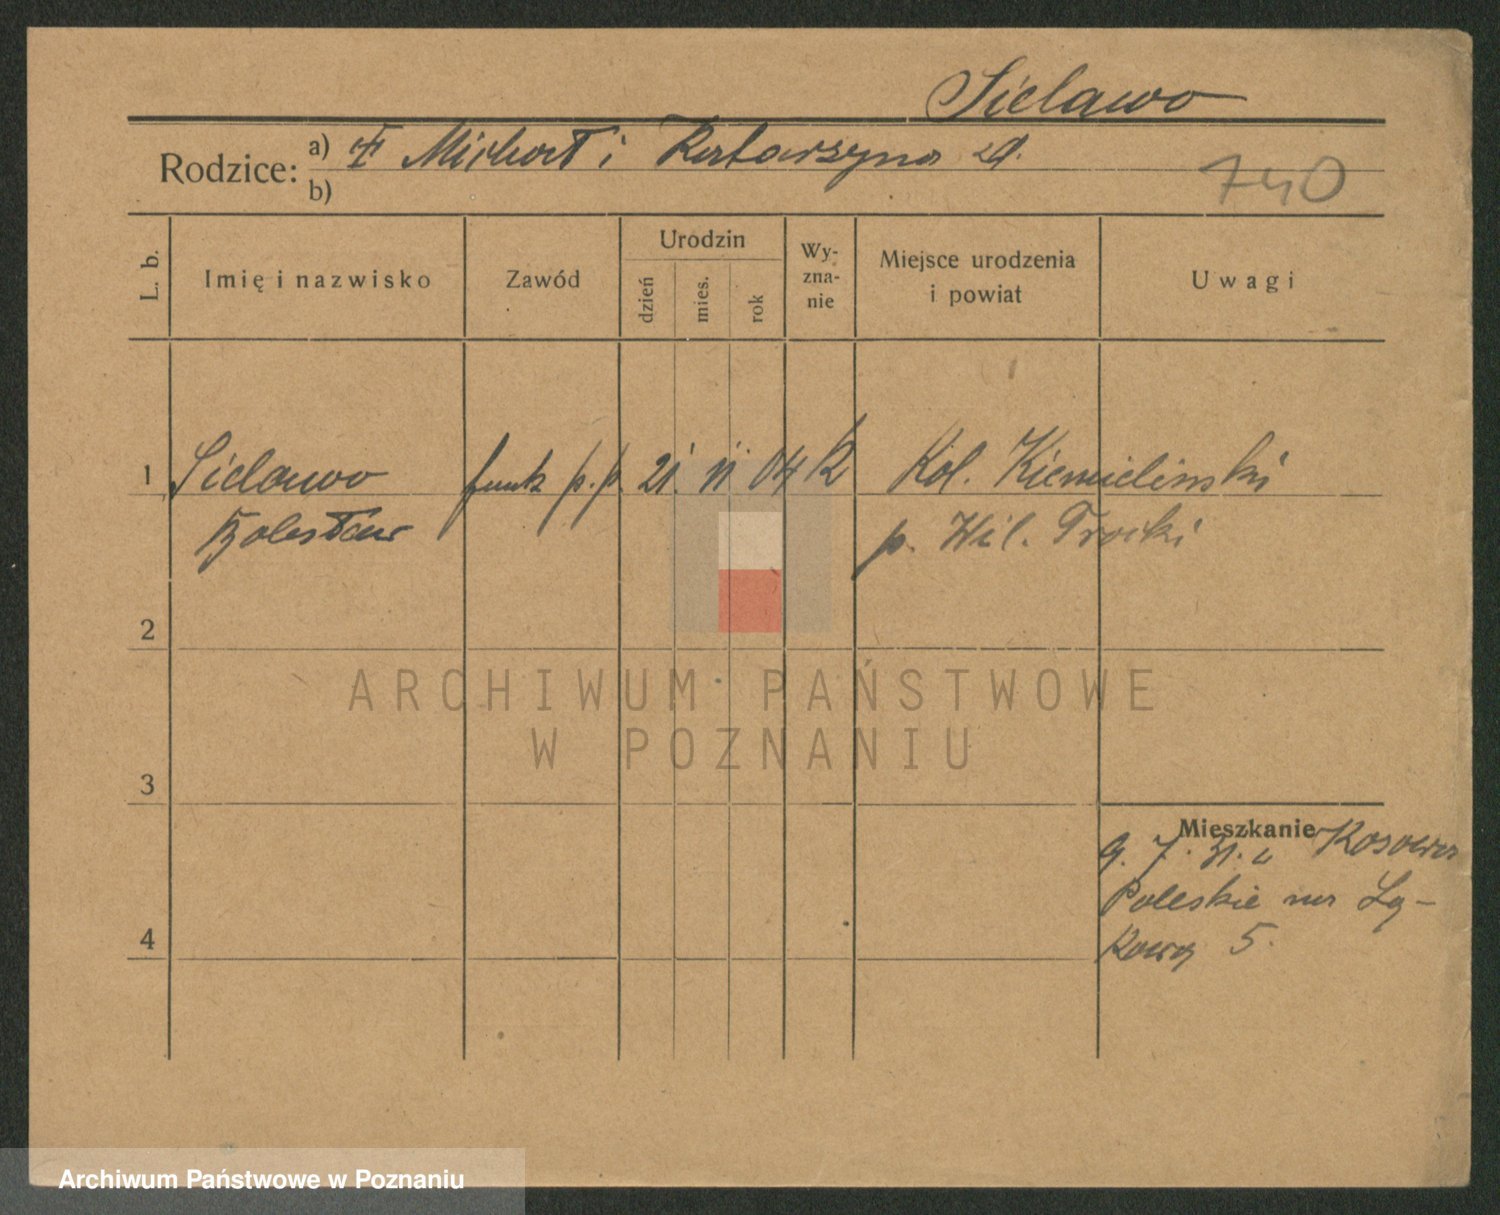 Sielawo
Rodzice: a) Michał i Katarzyna
b)
740
L. b.
Imię i nazwisko
Zawód
Urodzin
dzień
mies.
rok
Wy-
zna-
nie
Miejsce urodzenia
i powiat
Uwagi
1 Sielawo funk p.p. 21. 04 Kol. Kiemielinski
Bolesław p. Wil. Trocki
2
3
4
Mieszkanie
Kosowa
Poleskie
5.
ARCHIWUM PAŃSTWOWE
W POZNANIU
Archiwum Państwowe w Poznaniu